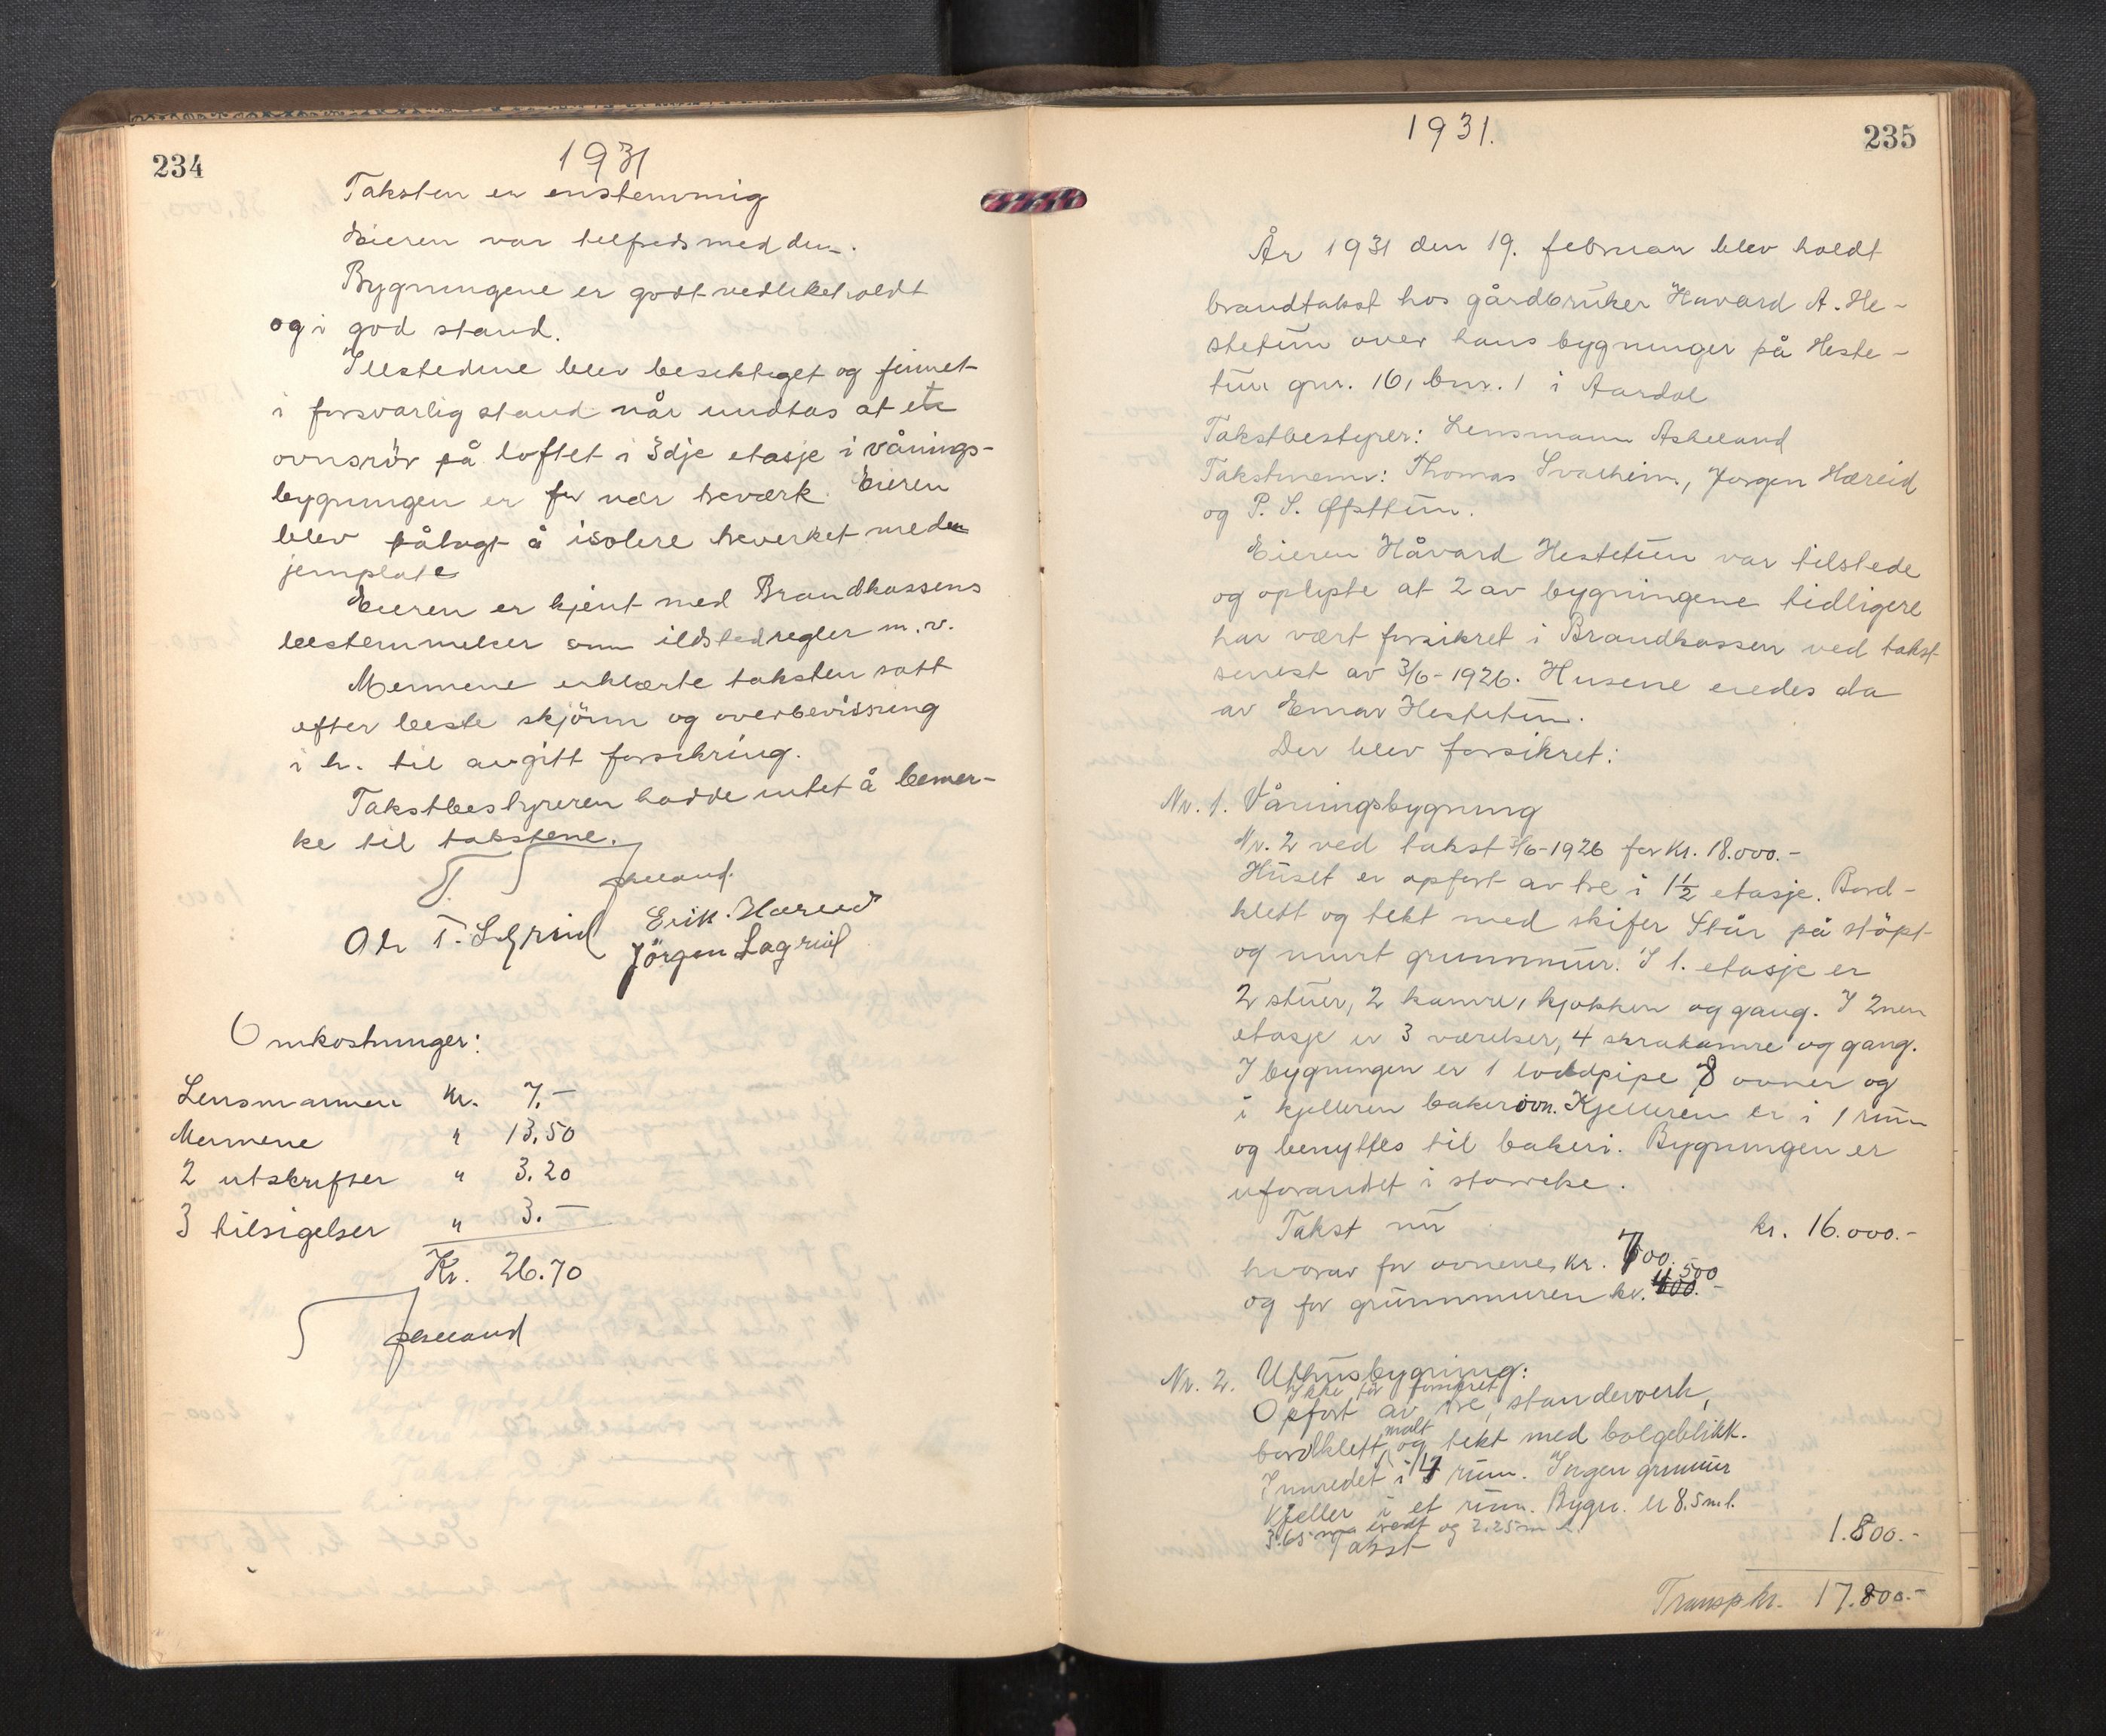 234
1931
Taksten er enstemmig
Eieren var tilfreds med den.
Bygningene er godt vedlikeholdt
og i god stand.
Ildstedene blev besiktiget og funnet
i forsvarlig stand når undtas at et
ovnsrör på loftet i 3dje etasje i vånings-
bygningen er for nær treværk. Eieren
blev pålagt å isolere treverket med en
jernplate
Eieren er kjent med Brandkassens
bestemmelser om ildstedregler m.v.
Mennene erklærte taksten satt
efter beste skjönn og overbevisning
i h. til avgitt forsikring.
Takstbestyreren hadde intet å bemer-
ke til takstene.
Askeland.
Ole T. Erik Hæreid
Jörgen Lægreid
Omkostninger:
Lensmannen Kr. 7.-
Mennene " 13.50
2 utskrifter " 3.20
3 tilsigelser " 3.-
Kr. 26.70
Askeland
235
1931.
År 1931 den 19. februar blev holdt
brandtakst hos gårdbruker Havard A. He-
stetun over hans bygninger på Heste-
tun gnr. 16, bnr. 1 i Aardal
Takstbestyrer: Lensmann Askeland
Takstmenn: Thomas Svalheim, Jørgen Hæreid
og P. S. Ofsttun.
Eieren Håvard Hestetun var tilstede
og oplyste at 2 av bygningene tidligere
har vært forsikret i Brandkassen ved takst
senest av 3/6-1926. Husene eiedes da
av Einar Hestetun.
Der blev forsikret:
Nr. 1. Våningsbygning
Nr. 2 ved takst 3/6-1926 for Kr. 18.000.-
Huset er opført av tre i 1½ etasje. Bord-
klett og tekt med skifer Står på stöpt
og murt grunnmur. I 1. etasje er
2 stuer, 2 kamre, kjøkken og gang. I 2nen
etasje er 3 værelser, 4 skrakamre og gang.
I bygningen er 1 loddpipe 8 ovner og
i kjelleren bakerovn. Kjelleren er i 1 rum
og benyttes til bakeri. Bygningen er
uforandret i størrelse.
Takst nu kr. 16.000.-
hvorav for ovnene kr. 700.
og for grunnmuren kr. 1500
Nr. 2. Uthusbygning:
Ikke før forsikret
Opført av tre, standerverk,
bordklett, malt og tekt med bølgeblikk.
Innredet i 4 rum. Ingen grunmur
Kjeller i et rum. Bygn. er 8.5 m l.
3.65 m bredt og 2.25 m h.
Takst 1.800.-
Transp kr. 17.800.-